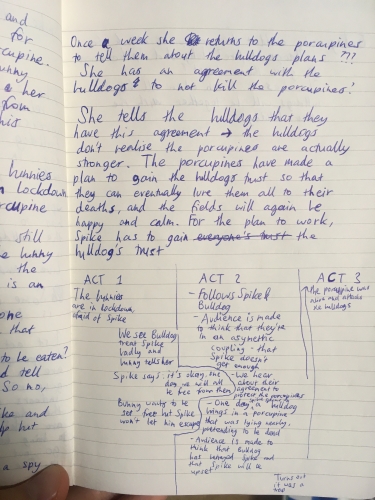 and
for
cupine.
bunny
a her
from
his
bunnies
n lockdown
rcupine
still
e bunny
the
is an
one
that
to be eaten?
d tell
So no,
ke and
lp het
a spy
Once a week she returns to the porcupines
to tell them about the bulldogs plans ???
She has an agreement with the
bulldogs to not kill the porcupines!
She tells the bulldogs that they
have this agreement → the bulldogs
don't realise the porcupines are actually
stronger. The porcupines have made a
plan to gain the bulldogs trust so that
they can eventually lure them all to their
deaths, and the fields will again be
happy and calm. For the plan to work,
Spike has to gain everyone's trust the
bulldog's trust
ACT 1
The bunnies
are in lockdown,
afraid of Spike
We see Bulldog
treat Spike
badly and
bunny tells her
Spike says: it's okay, one
day we will all
be free from them
Bunny wants to be
set free but Spike
won't let him escape
ACT 2
- Follows Spike &
Bulldog
- Audience is made
to think that they're
in an asymettic
coupling - that
Spike doesn't
get enough
- We hear
about their
agreement to
protect the porcupines
- One day a bulldog
brings in a porcupine
that was lying nearby,
pretending to be dead
- Audience is made to
think that Bulldog
has betrayed Spike and
that Spike will be
upset
ACT 3
The porcupine was
alive and attacks
the bulldogs
Turns out
it was a
trap